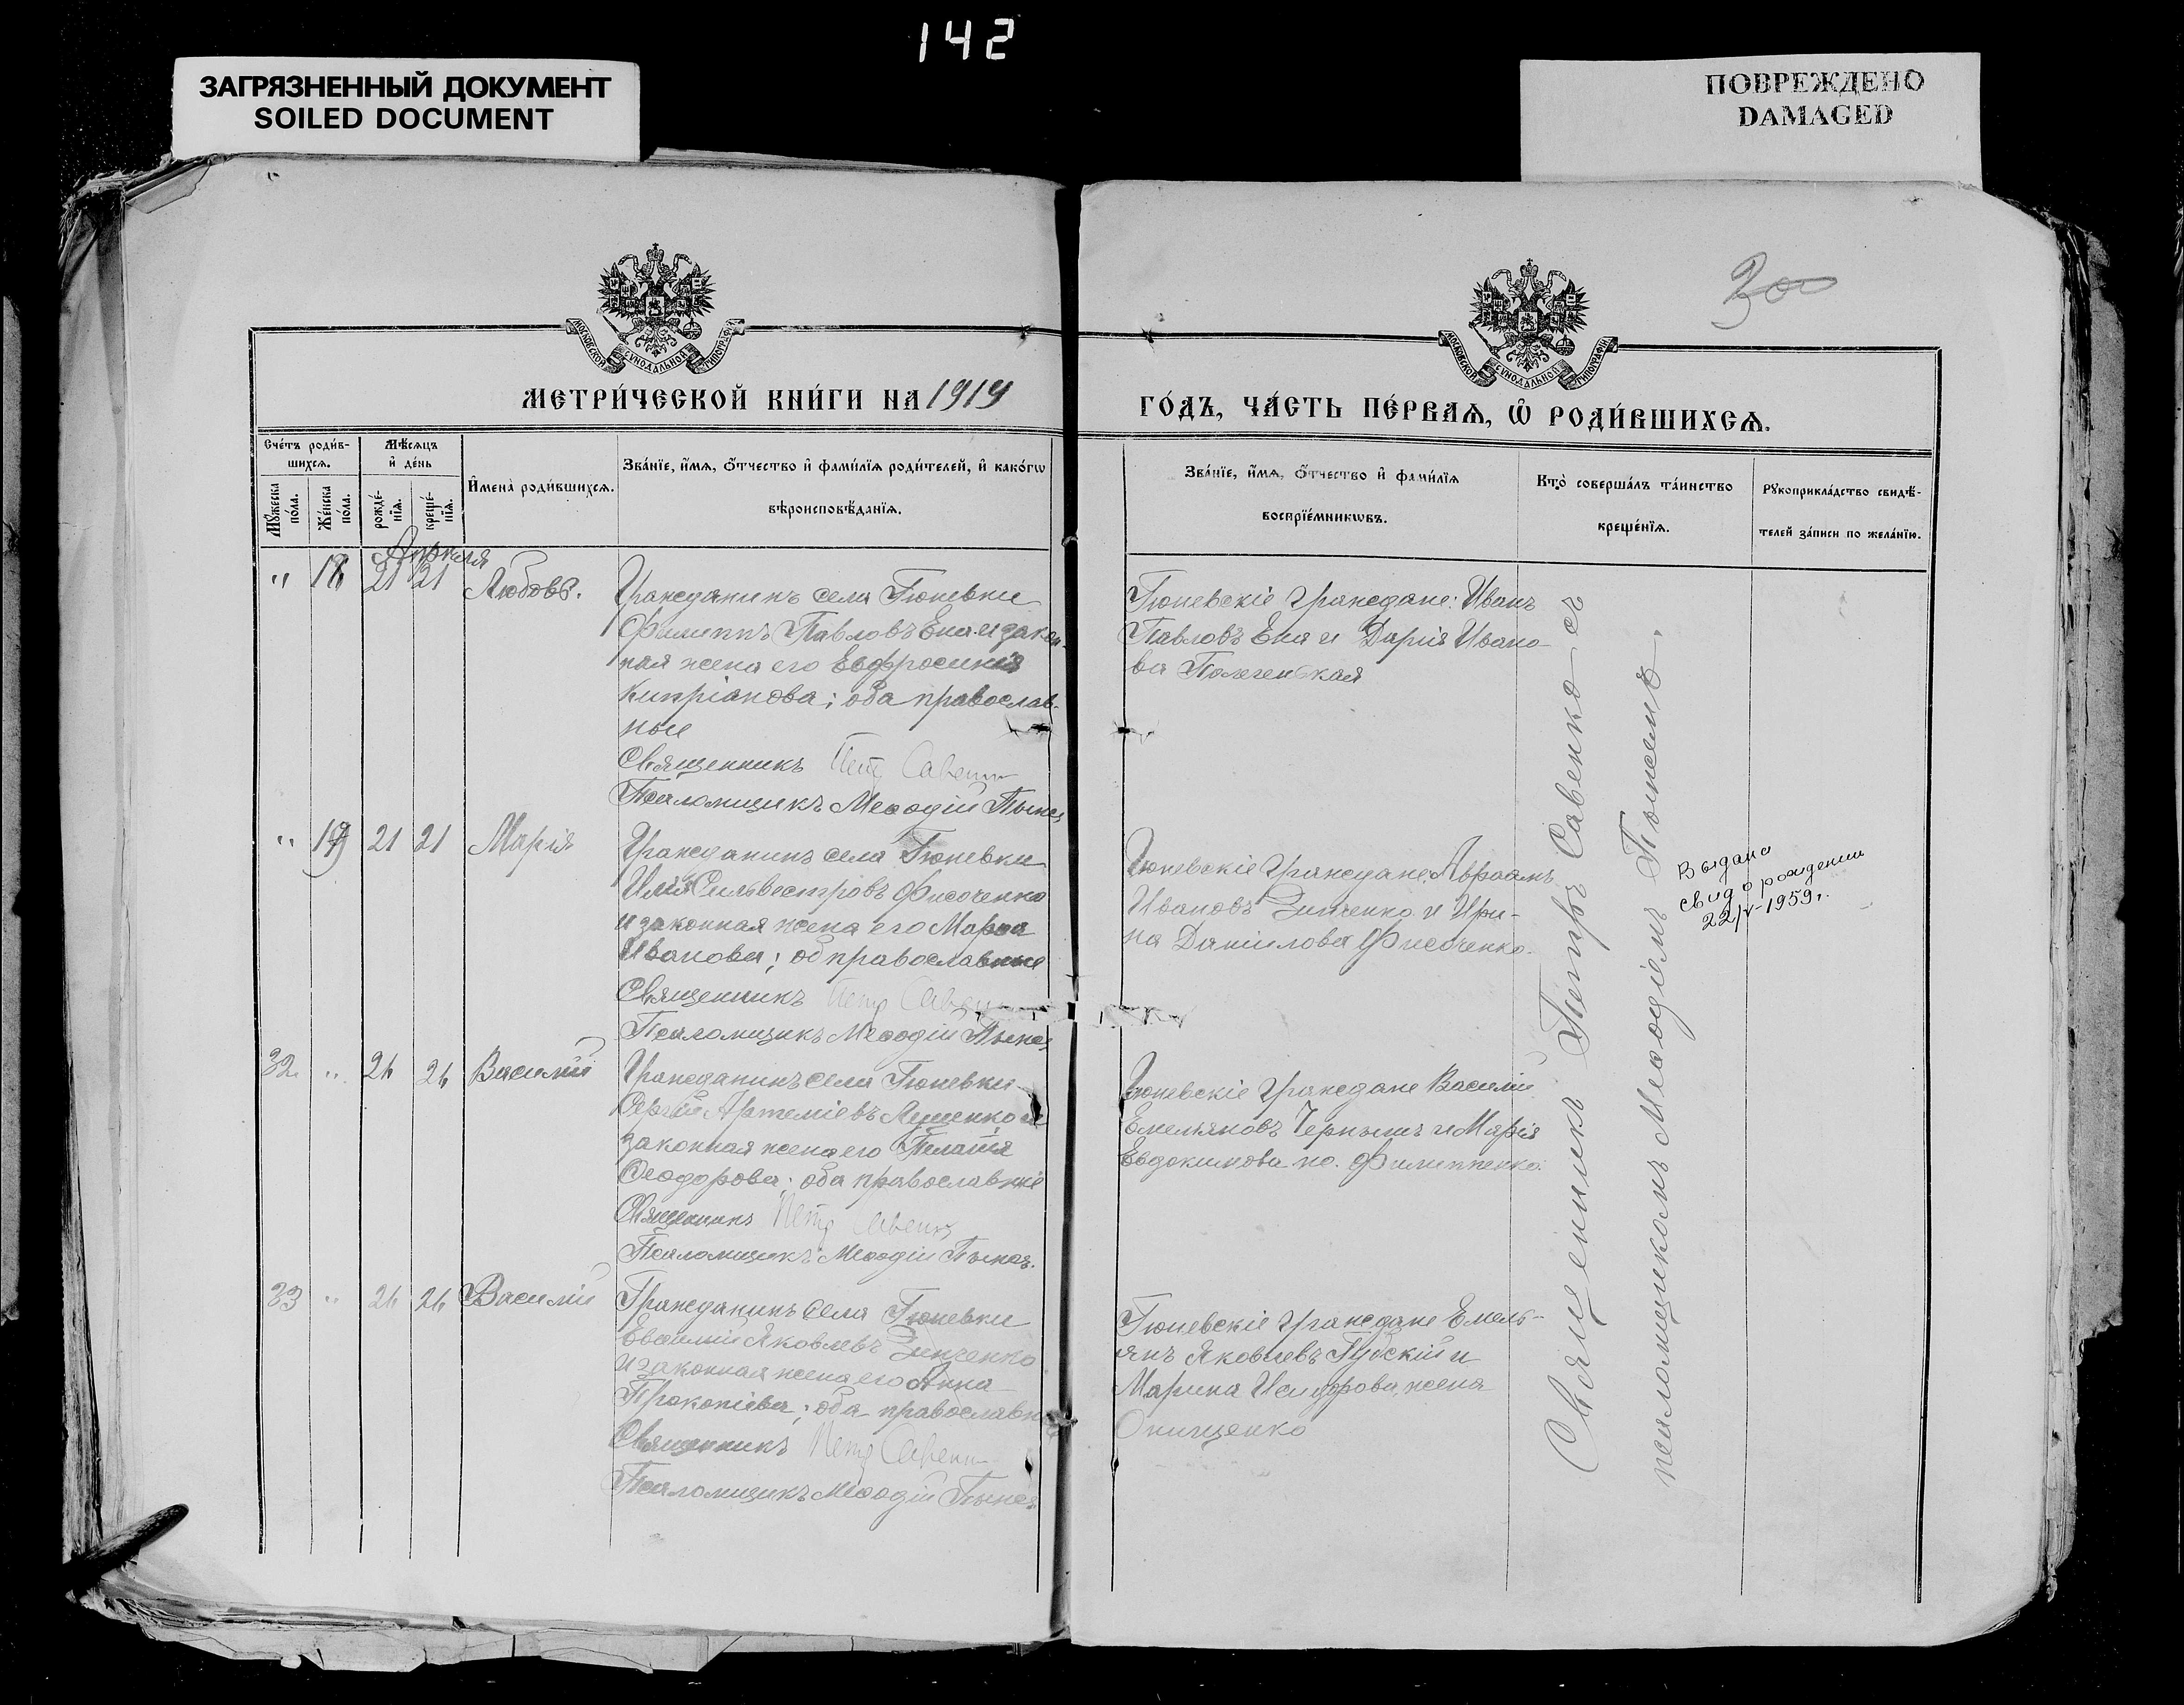 142
ЗАГРЯЗНЕННЫЙ ДОКУМЕНТ
SOILED DOCUMENT
ПОВРЕЖДЕНО
DAMAGED
300
МОСКОВСКОЙ СѴНОДАЛЬНОЙ ТИПОГРАФІИ
МОСКОВСКОЙ СѴНОДАЛЬНОЙ ТИПОГРАФІИ
МЕТРИ́ЧЕСКОЙ КНИ́ГИ НА 1919
ГО́ДЪ, ЧА́СТЬ ПЕ́РВАѦ, Ѽ РОДИ́ВШИХСѦ.
Сче́тъ роди́в-
шихсѧ.
Мꙋ́жеска по́ла.
Же́нска по́ла.
Мѣ́сѧцъ
и҆ де́нь
рожде́-
нїѧ.
креще́-
нїѧ.
И҆мена̀ роди́вшихсѧ.
Зва́нїе, и҆́мѧ, ѻ҆́тчество и҆ фами́лїѧ роди́телей, и҆ како́гѡ
вѣроисповѣ́данїѧ.
Зва́нїе, и҆́мѧ, ѻ҆́тчество и҆ фами́лїѧ
воспрїе́мникѡвъ.
Кто̀ соверша́лъ та́инство
креще́нїѧ.
Рꙋкоприкла́дство свидѣ́-
телей за́писи по жела́нїю.
Апрѣля
" 18 21 21 Любовь.
Гражданинъ села Гюневки
Филиппъ Павловъ Ена и закон-
ная жена его Евфросинія
Кипріанова; оба православ-
ные
Священникъ Петр Савенко
Псаломщикъ Меѳодій
Гюневскіе граждане: Иванъ
Павловъ Ена и Дарія Ивано-
ва
" 19 21 21 Марія
Гражданинъ села Гюневки
Илія Сильвестровъ Фисоченко
и законная жена его Марѳа
Иванова; об православные
Священникъ Петр Савенко
Псаломщикъ Меѳодій
Гюневскіе граждане: Авраамъ
Ивановъ Зинченко и Ири-
на Даніилова Фисоченко.
Выдано
свид о рождении
22/V-1959г.
32 " 26 26 Василій
Гражданинъ села Гюневки
Сергій Артеміевъ Лященко и
законная жена его Пелагія
Ѳеодорова; оба православные
Священникъ Петр Савенко
Псаломщикъ Меѳодій
Гюневскіе граждане Василій
Емельяновъ Чернышъ и Марія
Евдокимова Филиппенко.
33 " 26 26 Василій
Гражданинъ села Гюневки
Евѳимій Яковлевъ Зинченко
и законная жена его Анна
Прокопіева; оба православн
Священникъ Петр Савенко
Псаломщикъ Меѳодій
Гюневскіе граждане Емель-
янъ Яковлевъ Губскій и
Марина Исидорова жена
Онищенко
Священникъ Петръ Савенко съ
псаломщикомъ Меѳодіемъ